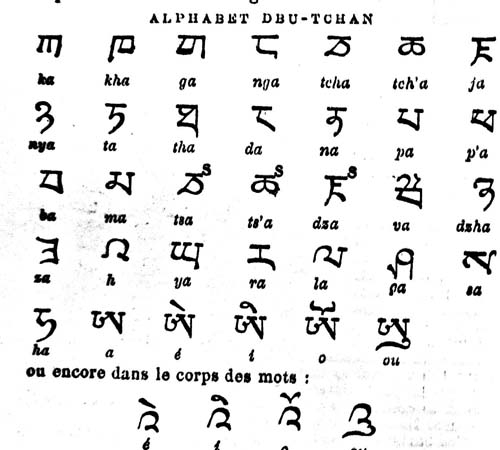 ALPHABET DBU-TCHAN
ཀ ཁ ག ང ཅ ཆ ཇ
ka kha ga nga tcha tch'a ja
ཉ ཏ ཐ ད ན པ ཕ
nya ta tha da na pa p'a
བ མ ཙ ཚ ཛ ཝ ཞ
ba ma tsa ts'a dza va dzha
ཟ འ ཡ ར ལ ཤ ས
za h ya ra la ça sa
ཧ ཨ ཨེ ཨི ཨོ ཨུ
ha a é i o ou
ou encore dans le corps des mots :
འེ འི འོ འུ
é i